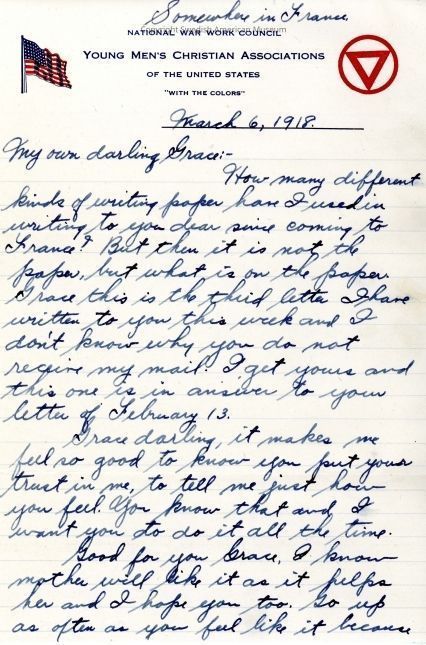 Somewhere in France
Copyright Swedish American Museum
NATIONAL WAR WORK COUNCIL
YOUNG MEN'S CHRISTIAN ASSOCIATIONS
OF THE UNITED STATES
"WITH THE COLORS"
March 6, 1918.
My own darling Grace:-
How many different
kinds of writing paper have I used in
writing to you dear since coming to
France? But then it is not the
paper, but what is on the paper.
Grace this is the third letter I have
written to you this week and I
don't know why you do not
receive my mail. I get yours and
this one is in answer to your
letter of February 13.
Grace darling, it makes me
feel so good to know you put your
trust in me, to tell me just how
you feel. You know that and I
want you to do it all the time.
Good for you Grace, I know
mother will like it as it helps
her and I hope you too. Go up
as often as you feel like it because